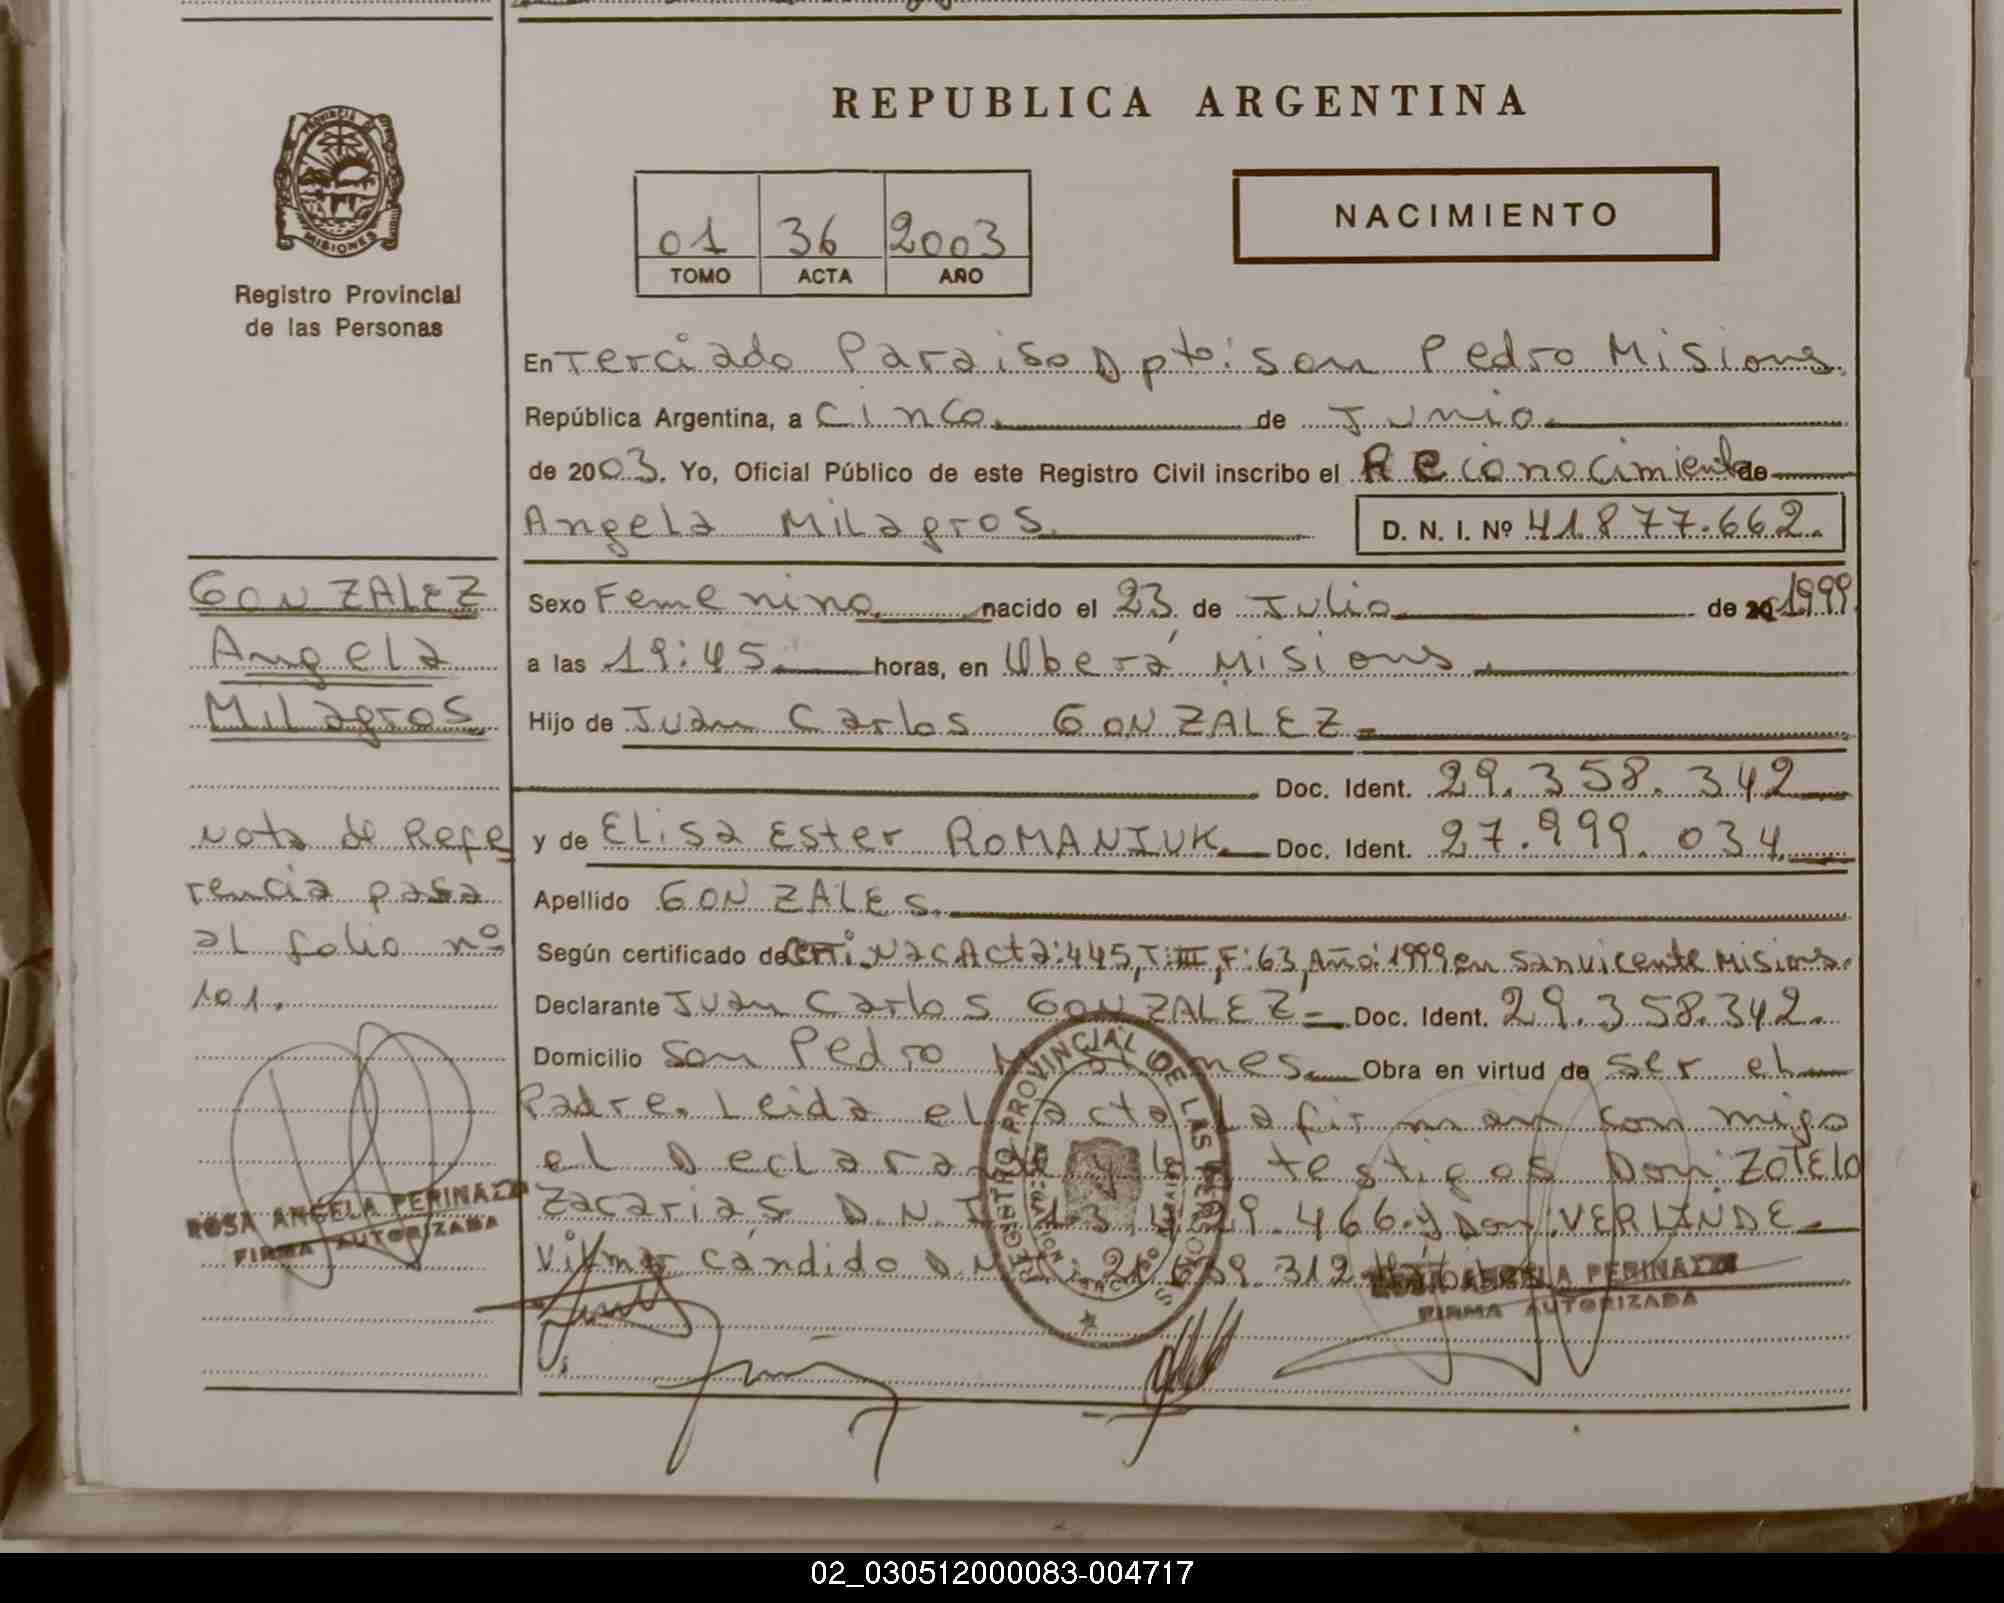 REPUBLICA ARGENTINA
PROVINCIA DE
MISIONES
Registro Provincial
de las Personas
01 36 2003
TOMO ACTA AÑO
NACIMIENTO
En Terciado Paraiso Dpto: San Pedro Misiones.
República Argentina, a Cinco de Junio
de 2003. Yo, Oficial Público de este Registro Civil inscribo el Reconocimiento de
Angela Milagros. D. N. I. Nº 41.877.662.
GONZALEZ
Angela
Milagros
Nota de Refe
rencia pasa
al folio nº
101.
ROSA ANGELA PERINAZZI
FIRMA AUTORIZADA
Sexo Femenino nacido el 23 de Julio de 1999
a las 19:45 horas, en Oberá Misiones
Hijo de Juan Carlos GONZALEZ
Doc. Ident. 29.358.342
y de Elisa Ester ROMANIUK Doc. Ident. 27.999.034
Apellido GONZALES
Según certificado de Nac Acta: 445, T: III, F: 63, Año: 1999 en San Vicente Misiones.
Declarante Juan Carlos GONZALEZ Doc. Ident. 29.358.342.
Domicilio San Pedro Misiones. Obra en virtud de ser el
Padre. Leida el acta La firman con migo
el Declarante y los testigos Don: ZOTELO
Zacarias D.N.I. 13.429.466 y Don: VERLINDE
Vilmar Cándido 312
REGISTRO PROVINCIAL DE LAS PERSONAS
ROSA ANGELA PERINAZZI
FIRMA AUTORIZADA
02_030512000083-004717